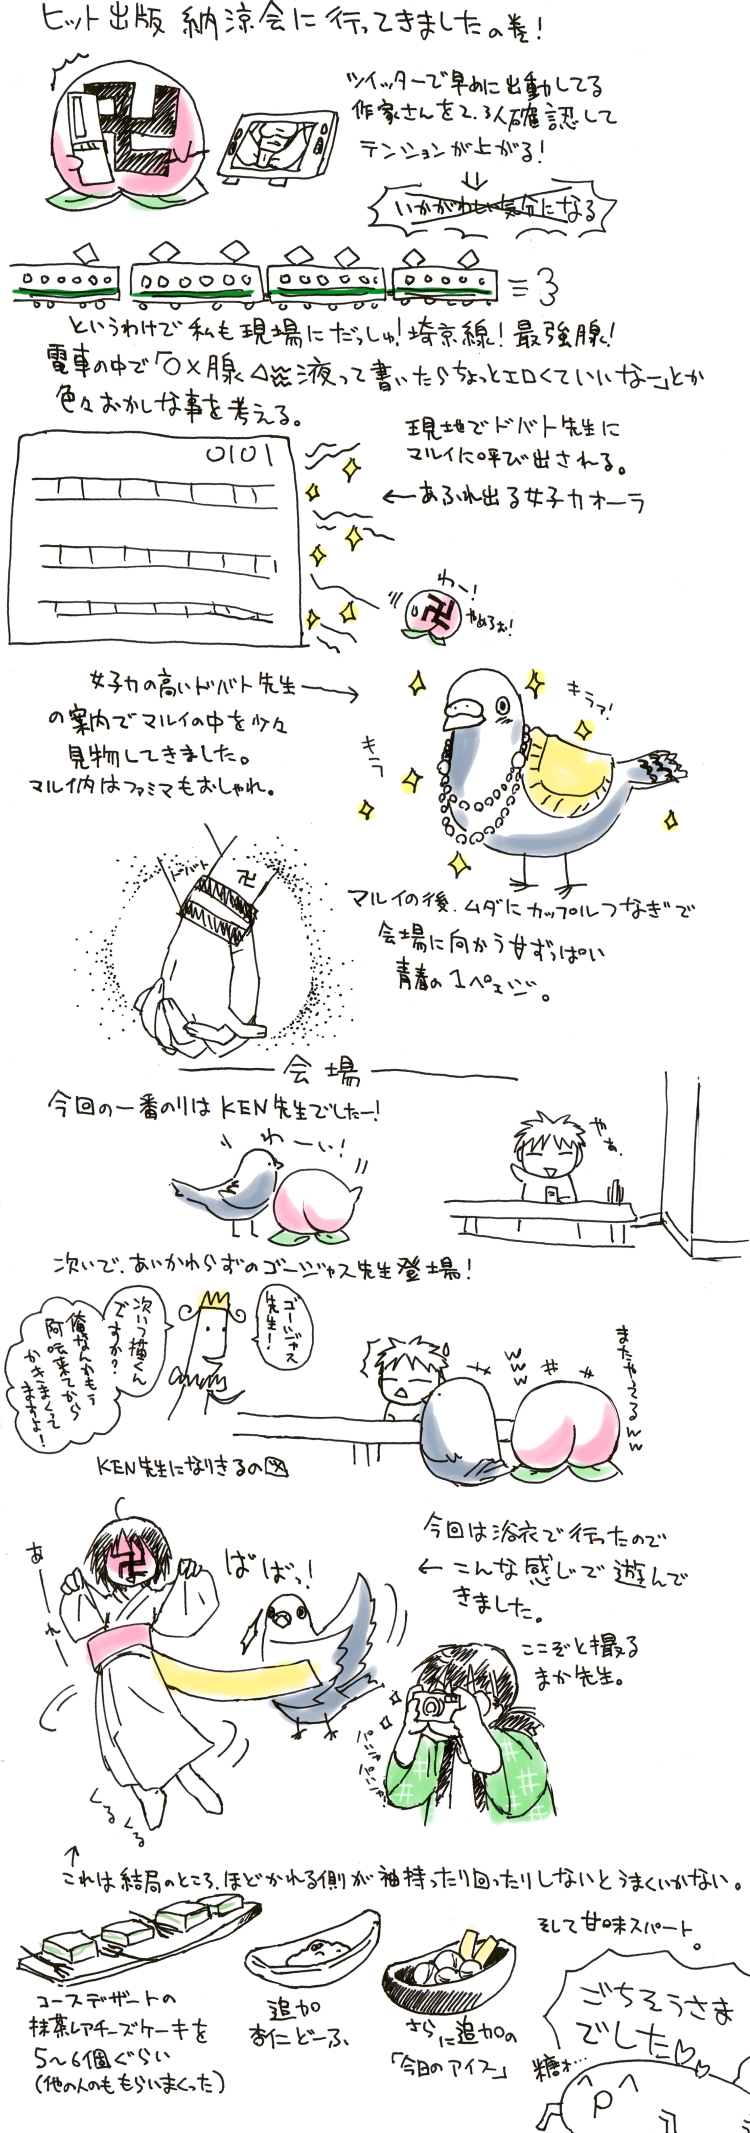 ヒット出版 納涼会に行ってきましたの巻!
ツイッターで早めに出動してる
作家さんを2.3人確認して
テンションが上がる!
いかがわしい気分になる
というわけで私も現場にだっしゅ!埼京線!最強腺!
電車の中で「○×腺△液って書いたらちょっとエロくていいなー」とか
色々おかしな事を考える。
0101
現地でドバト先生に
マルイに呼び出される。
←あふれ出る女子力オーラ
わー!
やめろぉ!
卍
女子力の高いドバト先生
の案内でマルイの中を少々
見物してきました。
マルイ内はファミマもおしゃれ。
キラァ!
キラ
ドバト
卍
マルイの後、ムダにカップルつなぎで
会場に向かう甘ずっぱい
青春の1ページ。
会場
今回の一番のりはKEN先生でしたー!
わーい!
やぁ。
次いで、あいかわらずのゴージャス先生登場!
ゴージャス
先生!
次いつ描くん
ですか?
俺なんかもう
阿吽来てから
かきまくって
ますよ!
KEN先生になりきるの図
またやってるww
www
あーれー
ばばっ!
今回は浴衣で行ったので
←こんな感じで遊んで
きました。
ここぞと撮る
まか先生。
パシャ
パシャ
くるくる
↑
これは結局のところ、ほどかれる側が袖持ったり回ったりしないとうまくいかない。
そして甘味スパート。
コースデザートの
抹茶レアチーズケーキを
5〜6個ぐらい
(他の人のももらいまくった)
追加
杏仁どーふ
さらに追加の
「今日のアイス」
ごちそうさま
でした♡♡
糖が…